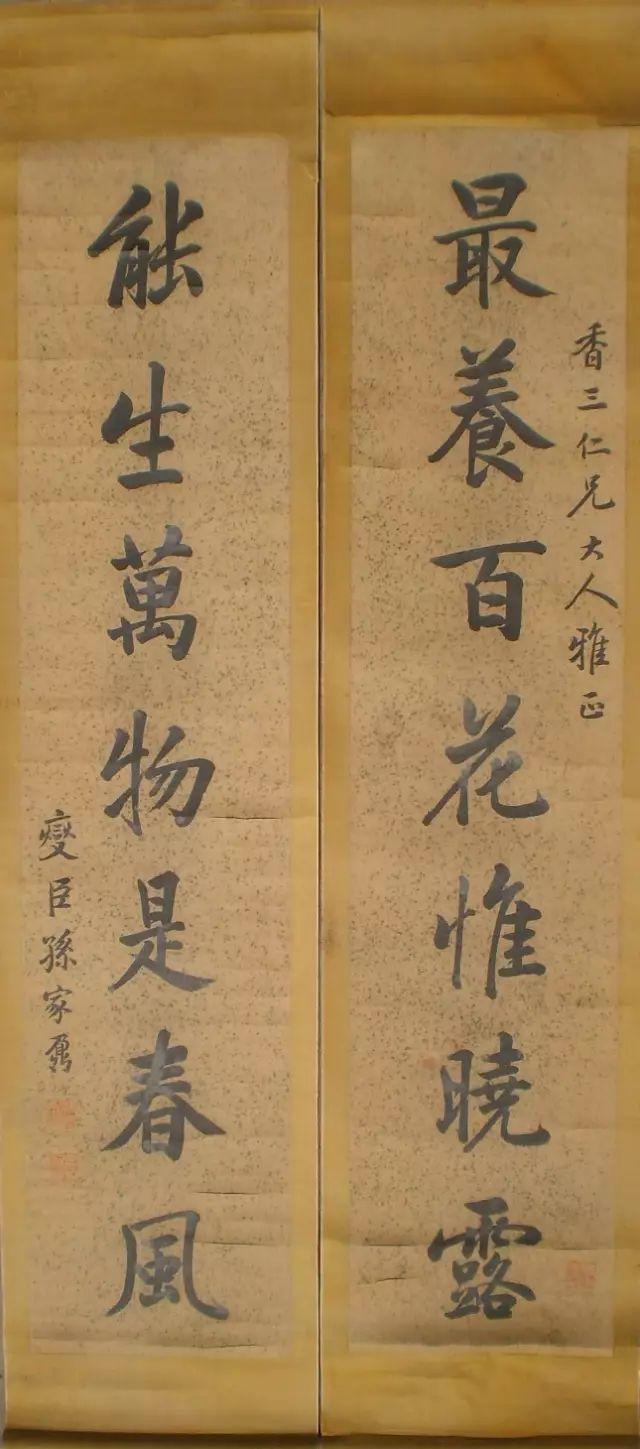 香三仁兄大人雅正
最養百花惟曉露
能生萬物是春風
燮臣孫家鼐